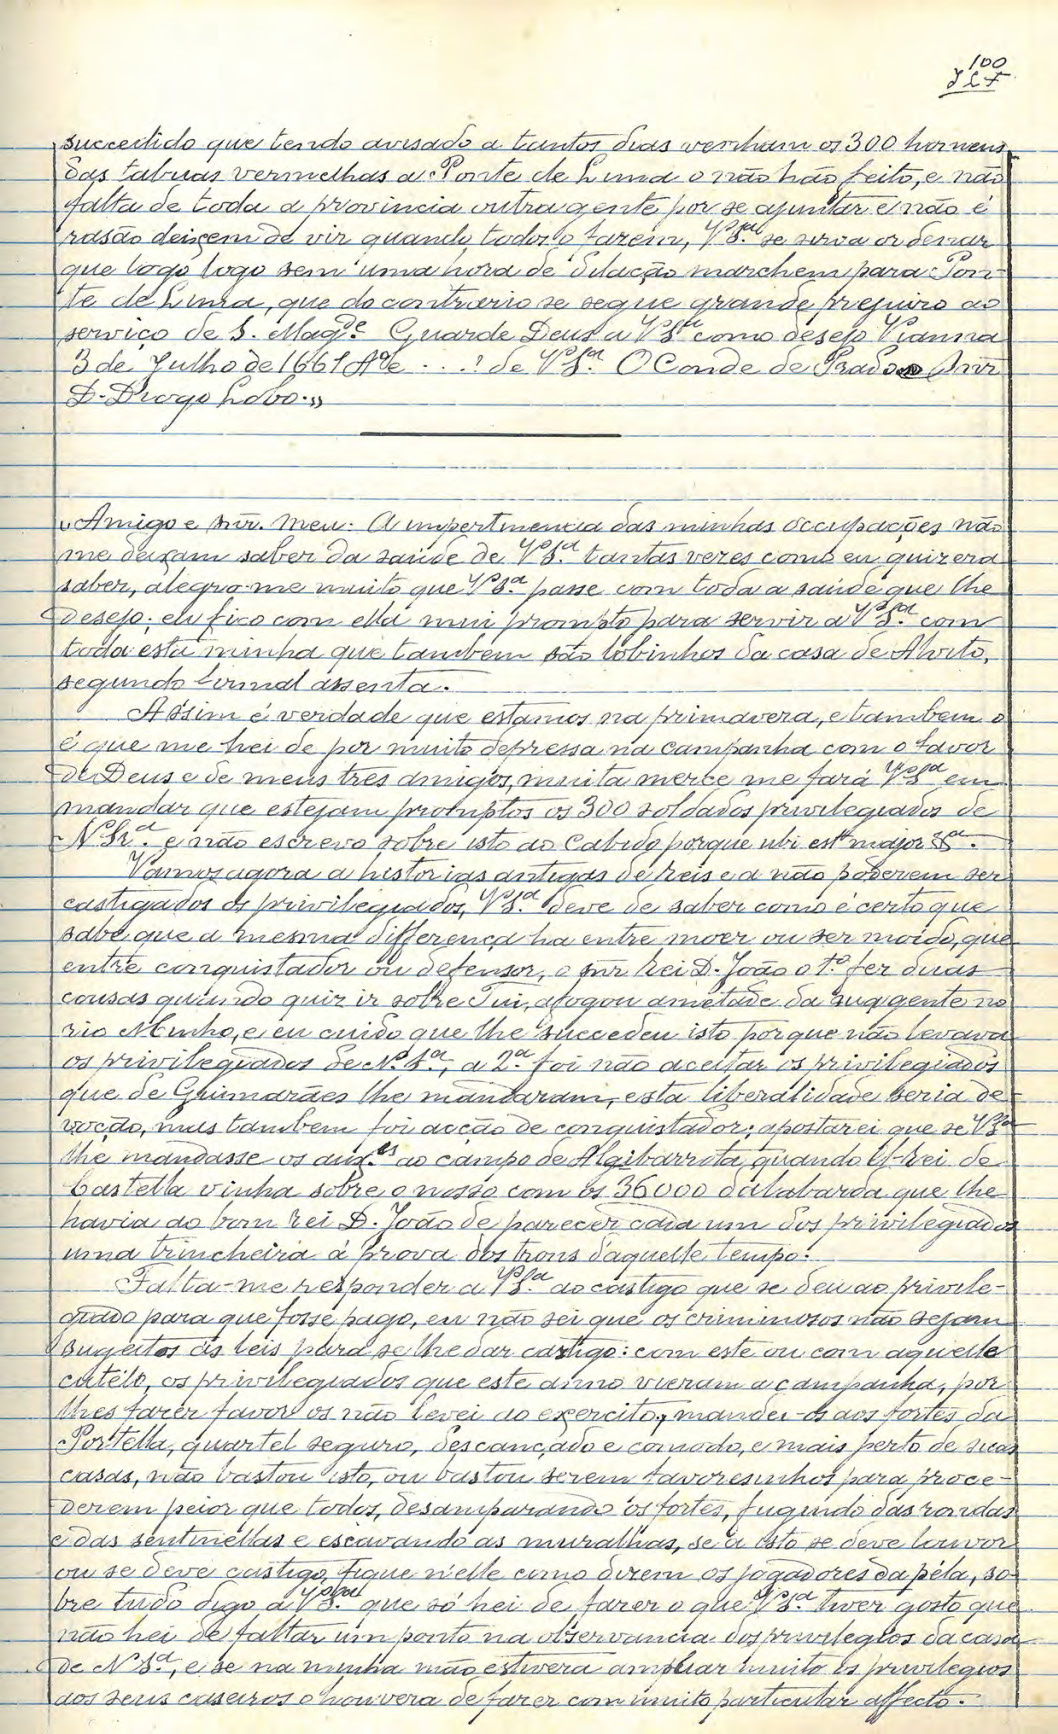 100
succedido que tendo avisado a tantos dias venham os 300 homens
das tabuas vermelhas a Ponte de Lima o não hão feito, e não
falta de toda a provincia outra gente por se ajuntar e não é
rasão deixem de vir quando todos o fazem, V. S.ª se serva ordenar
que logo logo sem uma hora de dilação marchem para Pon-
te de Lima, que do contrario se segue grande prejuizo ao
serviço de S. Mag.de Guarde Deus a V. S.ª como desejo Vianna
3 de Julho de 1661 A.º de . . . ? de V. S.ª O Conde de Prado Snr.
D. Diogo Lobo.»
«Amigo e snr. meu: A impertinencia das minhas occupações não
me deixam saber da saúde de V. S.ª tantas vezes como eu quizera
saber, alegro-me muito que V. S.ª passe com toda a saúde que lhe
desejo; eu fico com ella mui prompto para servir a V. S.ª com
toda esta minha que tambem são lobinhos da casa de Alvito,
segundo assenta.
Assim é verdade que estamos na primavera, e tambem o
é que me hei de por muito depressa na campanha com o favor
de Deus e de meus tres amigos, muita merce me fará V. S.ª em
mandar que estejam promptos os 300 soldados privilegiados de
N. Sr.ª e não escrevo sobre isto ao Cabido porque ubi est major &ª.
Vamos agora a historias antigas de reis e a não poderem ser
castigados os privilegiados, V. S.ª deve de saber como é certo que
sabe que a mesma differença ha entre moer ou ser moido, que
entre conquistador ou defensor, o snr. rei D. João o 1.º fez duas
cousas quando quiz ir sobre Tui, afogou ametade da sua gente no
rio Minho, e eu cuido que lhe succedeu isto porque não levava
os privilegiados de N. S.ª, a 2.ª foi não aceitar os privilegiados
que de Guimarães lhe mandaram, esta liberalidade seria de-
voção, mas tambem foi acção de conquistador; apostarei que se V. S.ª
lhe mandasse os aux.es ao campo de Algibarrota, quando El-rei de
Castella vinha sobre o nosso com os 36000 d'alabarda que lhe
havia ao bom rei D. João de parecer cada um dos privilegiados
uma trincheira á prova dos trons d'aquelle tempo.
Falta-me responder a V. S.ª ao castigo que se deu ao privile-
giado para que fosse pago, eu não sei que os criminosos não sejam
sugeitos ás leis para se lhe dar castigo: com este ou com aquelle
cutélo, os privilegiados que este anno vieram a campanha, por
lhes fazer favor os não levei ao exercito, mandei-os aos fortes da
Portella, quartel seguro, descançado e comodo, e mais perto de suas
casas, não bastou isto, ou bastou serem favoresinhos para proce-
derem peior que todos, desamparando os fortes, fugindo das rondas
e das sentinellas e escavando as muralhas, se a isto se deve louvor
ou se deve castigo, fique n'elle como dizem os jogadores da péla, so-
bre tudo digo a V. S.ª que só hei de fazer o que V. S.ª tiver gosto que
não hei de faltar um ponto na observancia dos privilegios da casa
de N. S.ª, e se na minha mão estivera ampliar muito os privilegios
aos seus caseiros o houvera de fazer com muito particular affecto.